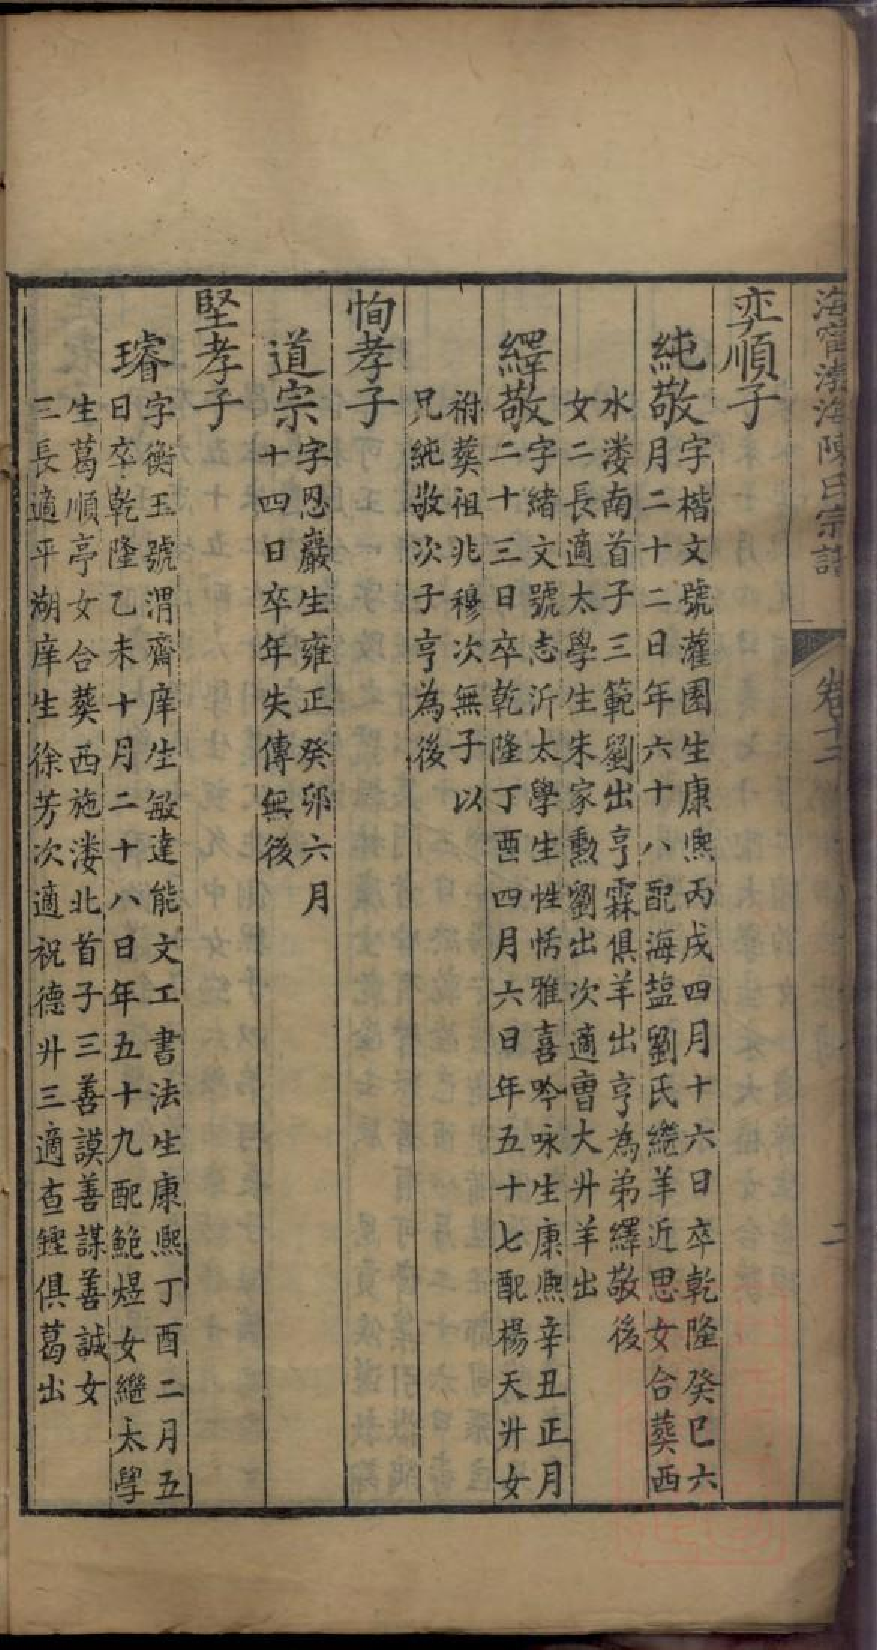 海寧渤海陳氏宗譜
卷十二
二
弈順子
純敬
字楷文號灌園生康熙丙戌四月十六日卒乾隆癸巳六
月二十二日年六十八配海盐劉氏繼羊近思女合葬西
水溇南首子三範劉出亨霖俱羊出亨為弟繹敬後
女二長適太學生朱家勲劉出次適曹大升羊出
繹敬
字緒文號志沂太學生性恬雅喜吟咏生康熙辛丑正月
二十三日卒乾隆丁酉四月六日年五十七配楊天升女
祔葬祖兆穆次無子以
兄純敬次子亨為後
恂孝子
道宗
字恩巖生雍正癸卯六月
十四日卒年失傳無後
堅孝子
璿
字衡玉號渭齋庠生敏達能文工書法生康熙丁酉二月五
日卒乾隆乙未十月二十八日年五十九配鮑煜女繼太學
生葛順亭女合葬西施溇北首子三善謨善謀善誠女
三長適平湖庠生徐芳次適祝德升三適查鏗俱葛出